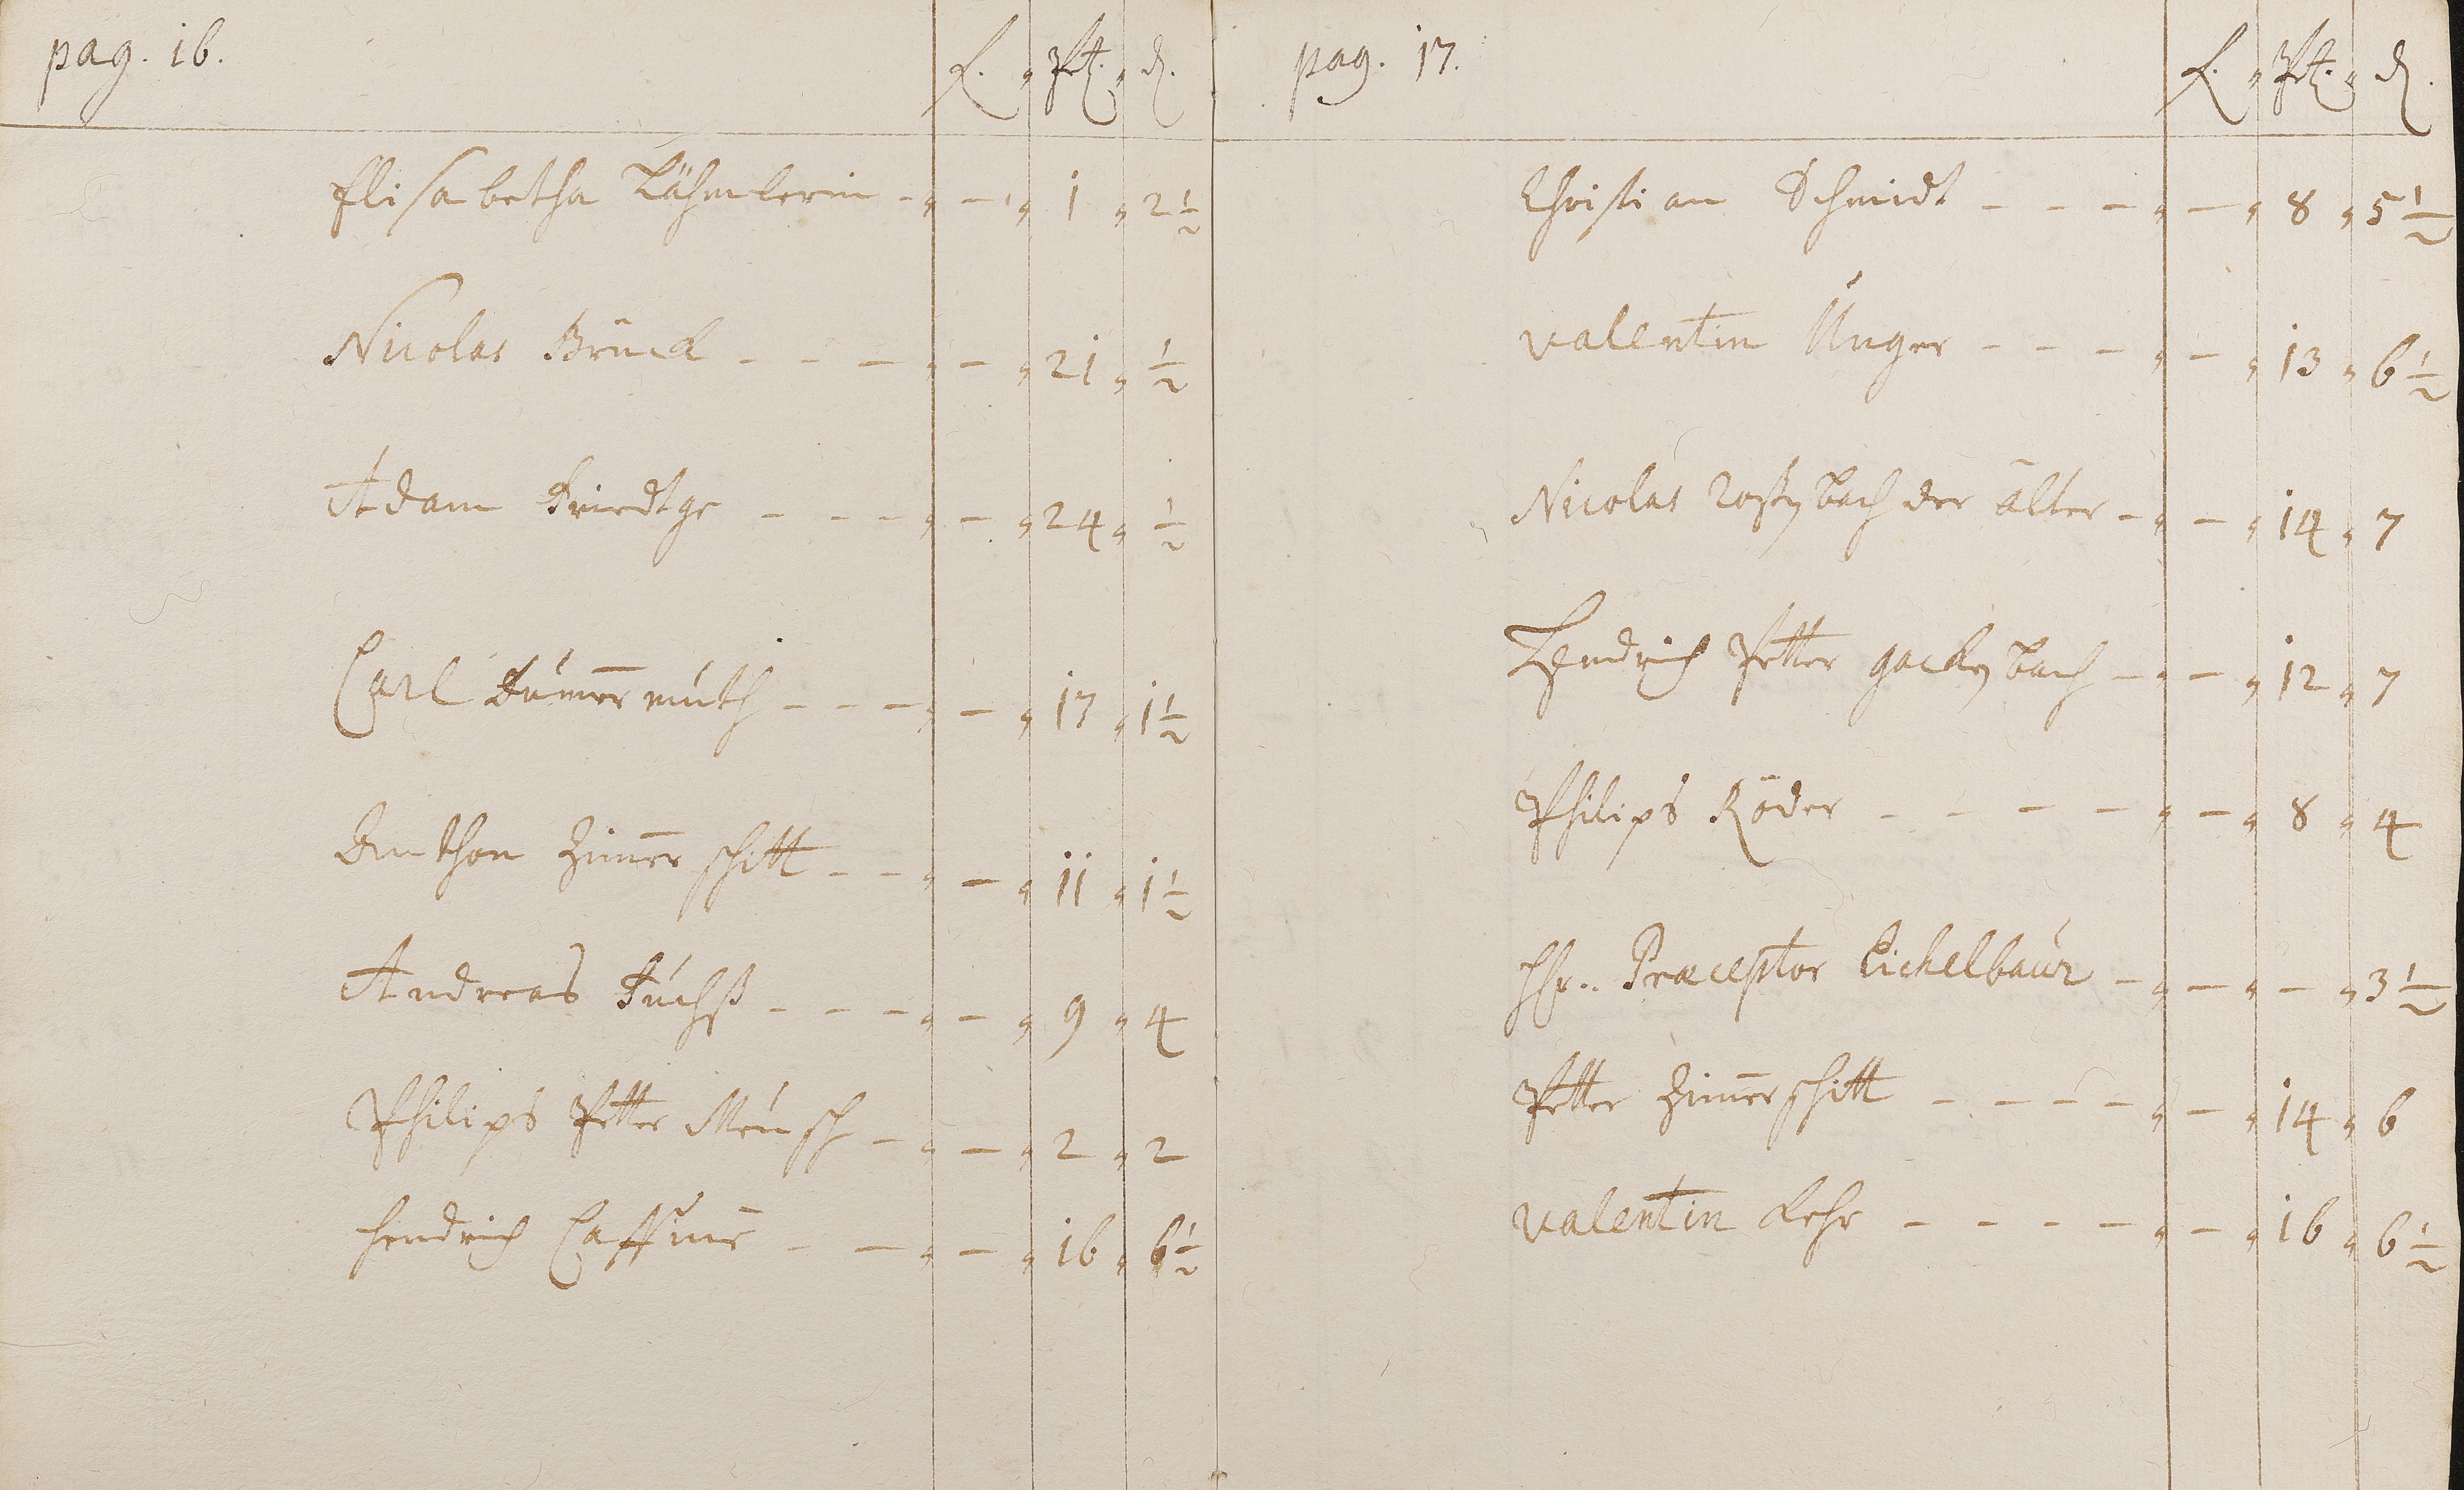 pag. 16.
f. „ Pf. „ d.
Elisabetha Lähmlerin - „ - „ 1 „ 2 1/2
Nicolas Brück - - - „ - „ 21 „ 1/2
Adam Friedtge - - - - „ - „ 24 „ 1/2
Carl Dum̅ermuth - - - „ - „ 17 „ 1 1/2
Anthon Zim̅erschitt - - „ - „ 11 „ 1 1/2
Andreas Fuchß - - - „ - „ 9 „ 4
Philips Petter Meusch - „ - „ 2 „ 2
Hendrich - - „ - „ 16 „ 6 1/2
pag. 17.
f. „ Pf. „ d.
Christian Schmidt - - - „ - „ 8 „ 5 1/2
Valentin Unger - - - „ - „ 13 „ 6 1/2
Nicolas Roßbach der älter - „ - „ 14 „ 7
Hendrich Petter Gackenbach - „ - „ 12 „ 7
Philips Röder - - - - - „ - „ 8 „ 4
Hr. Præceptor Eichelbaur - „ - „ - „ 3 1/2
Petter Zim̅erschitt - - - - „ - „ 14 „ 6
Valentin Lehr - - - - „ - „ 16 „ 6 1/2